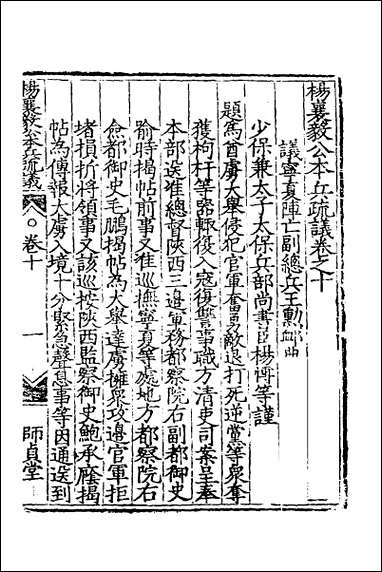 楊襄毅公本兵疏議卷之十
議寧夏陣亡副總兵王勳卹典
少保兼太子太保兵部尚書臣楊博等謹
題為酋虜大舉侵犯官軍奮勇敵退打死逆黨等衆奪
獲拘杆等器輙復入寇復讐事職方清吏司案呈奉
本部送准總督陝西三邊軍務都察院右副都御史
喻時揭帖前事又准巡撫寧夏等處地方都察院右
僉都御史毛鵬揭帖為大舉達虜擁衆攻邊官軍拒
堵損折將領事又該巡按陝西監察御史鮑承廕揭
帖為傳報大虜入境十分緊急聲息事等因通送到
楊襄毅公本兵疏議
卷十
一
師貞堂